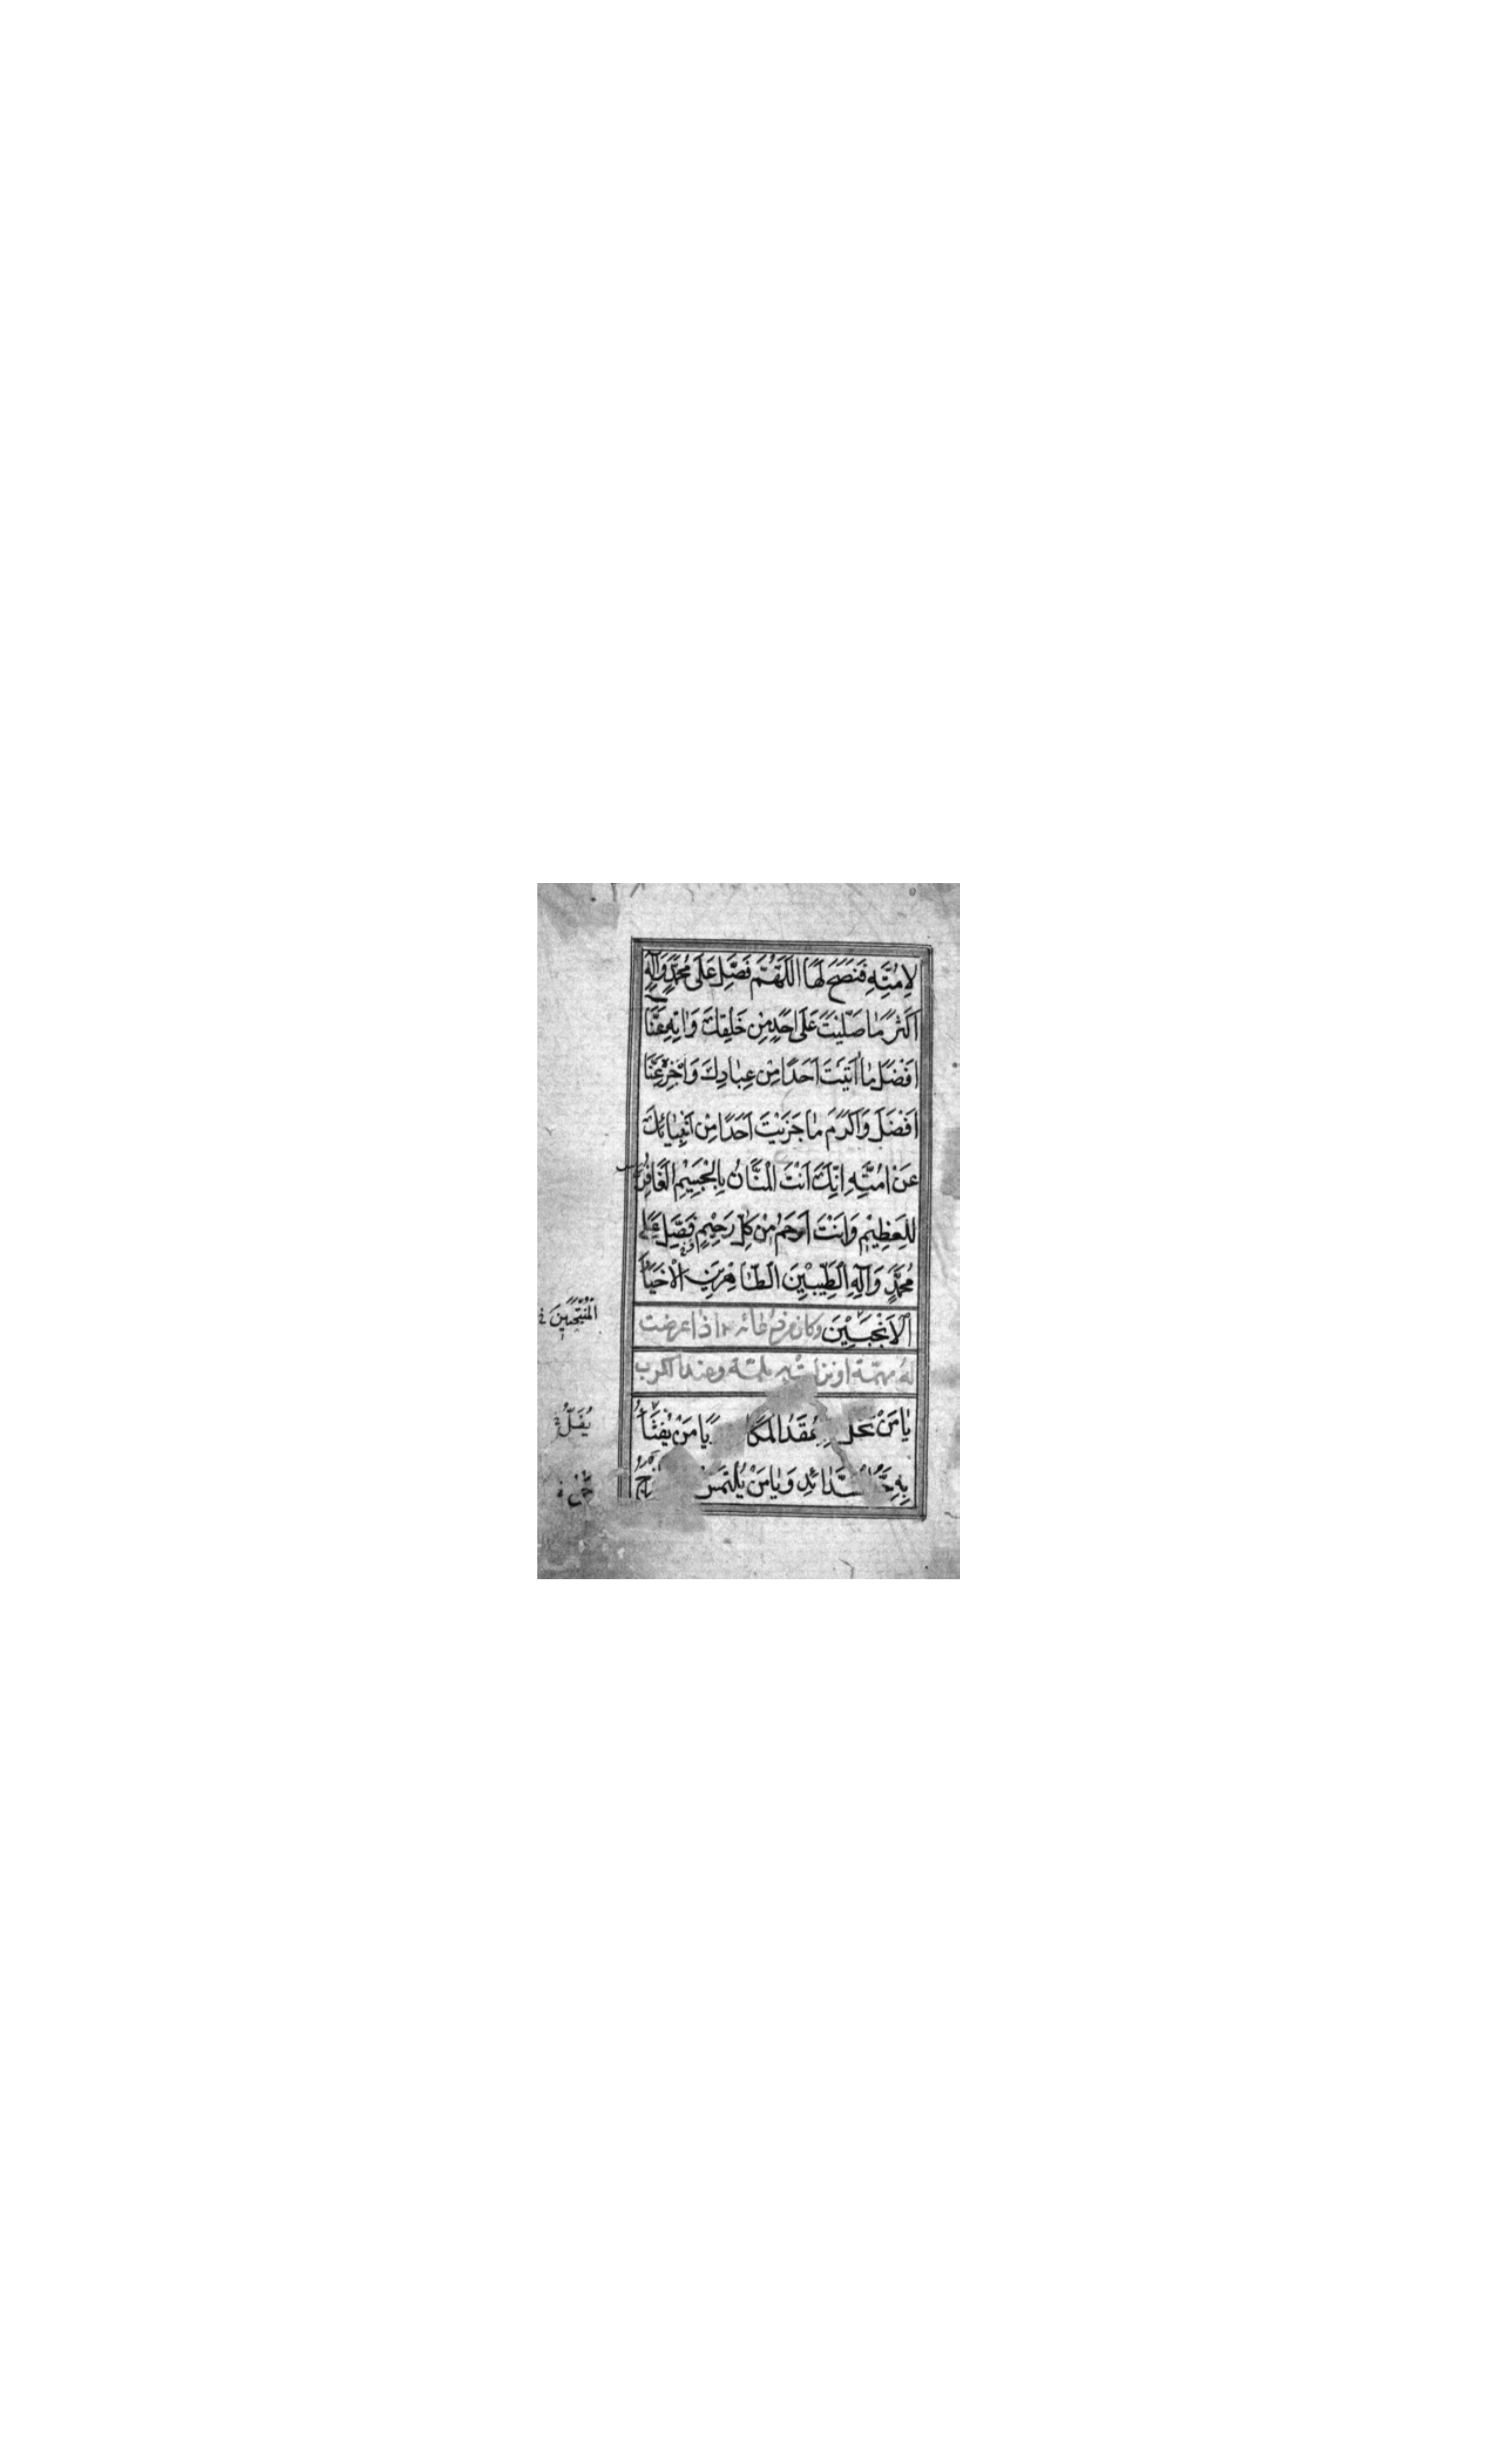 لِاُمَّتِهِ فَنَصَحَ لَهَا اَللّٰهُمَّ فَصَلِّ عَلٰى مُحَمَّدٍ وَآلِهِ
اَكْثَرَ مَا صَلَّيْتَ عَلٰى اَحَدٍ مِنْ خَلْقِكَ وَاٰتِهِ عَنَّا
اَفْضَلَ مَا اٰتَيْتَ اَحَدًا مِنْ عِبَادِكَ وَاجْزِهِ عَنَّا
اَفْضَلَ وَاَكْرَمَ مَا جَزَيْتَ اَحَدًا مِنْ اَنْبِيَائِكَ
عَنْ اُمَّتِهِ اِنَّكَ اَنْتَ الْمَنَّانُ بِالْجَسِيْمِ الْغَافِرُ
لِلْعَظِيْمِ وَاَنْتَ اَرْحَمُ مِنْ كُلِّ رَحِيْمٍ فَصَلِّ عَلٰى
مُحَمَّدٍ وَآلِهِ الطَّيِّبِيْنَ الطَّاهِرِيْنَ الْاَخْيَارِ
الْاَنْجَبِيْنَ وكان من دعائه اذا عرضت
له مهمّة او نزلت به ملمّة وعند الكرب
يَا مَنْ تُحَلُّ بِهِ عُقَدُ الْمَكَا يَا مَنْ يُفْثَأُ
بِهِ حَدُّ الشَّدَائِدِ وَيَا مَنْ يُلْتَمَسُ
الْمُنْتَجَبِيْنَ
يُفَلُّ